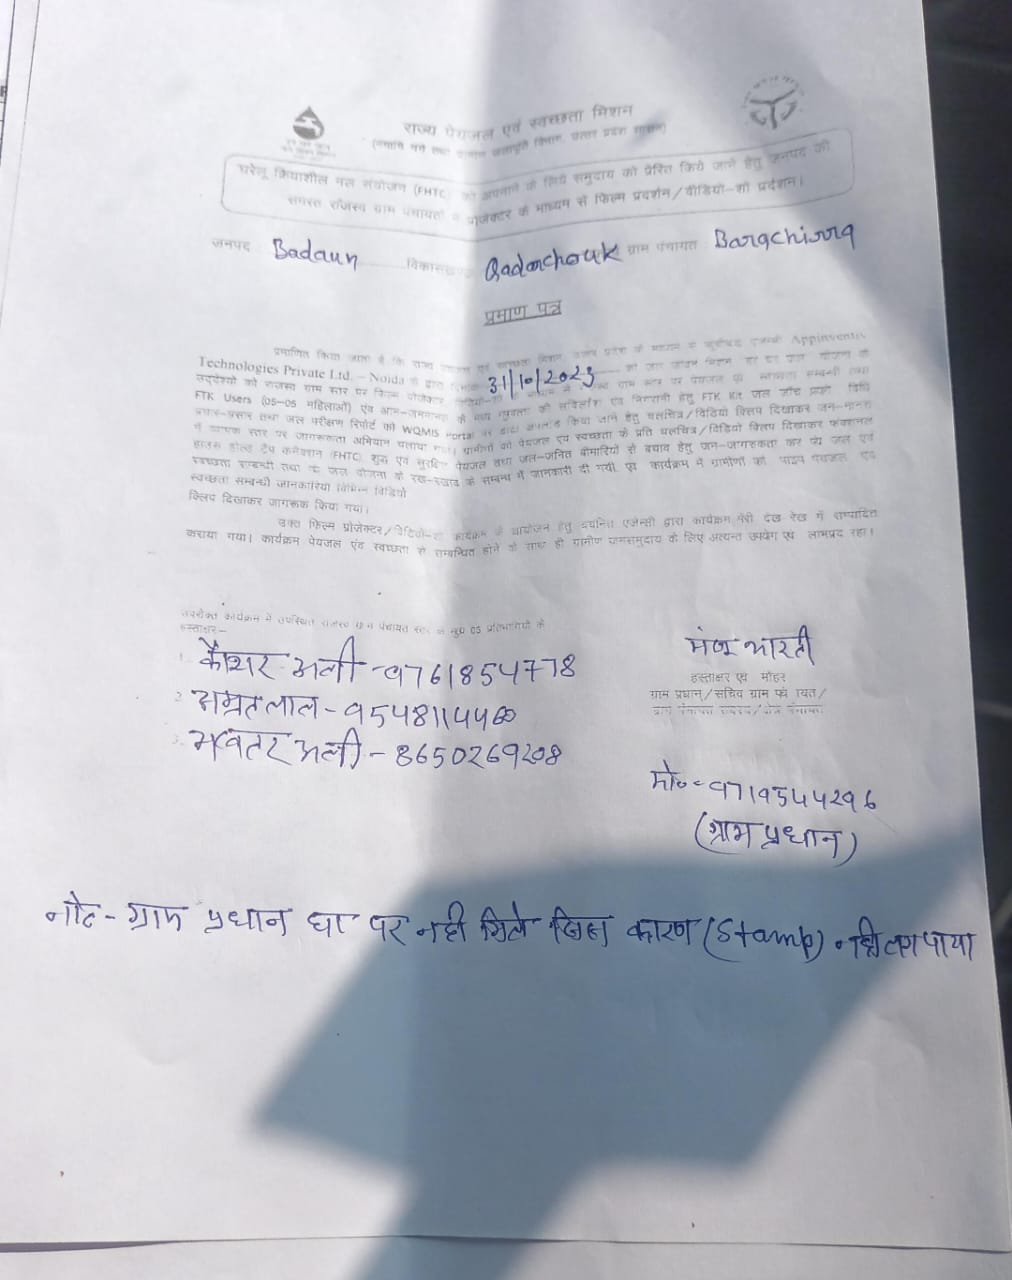 राज्य पेयजल एवं स्वच्छता मिशन
घरेलू क्रियाशील नल संयोजन (FHTC) को अपनाने के लिये समुदाय को प्रेरित किये जाने हेतु जनपद की
समस्त राजस्व ग्राम पंचायतों में प्रोजेक्टर के माध्यम से फिल्म प्रदर्शन/वीडियो-शो प्रदर्शन।
जनपद Badaun विकासखण्ड Qadarchouk ग्राम पंचायत
प्रमाण पत्र
प्रमाणित किया जाता है कि राज्य पेयजल एवं स्वच्छता मिशन, उत्तर प्रदेश के माध्यम से एजेन्सी Appinventiv
Technologies Private Ltd. – Noida के द्वारा दिनांक 31/10/2023 को जल जीवन मिशन हर घर जल योजना के
उद्देश्यों को राजस्व ग्राम स्तर पर फिल्म प्रोजेक्टर ग्राम स्तर पर पेयजल एवं स्वच्छता सम्बन्धी तथा
FTK Users (05-05 महिलाओं) एवं आम-जनमानस के मध्य गुणवत्ता की सर्विलांस एवं निगरानी हेतु FTK Kit जल जाँच प्रति विधि
प्रचार-प्रसार तथा जल परीक्षण रिपोर्ट को WQMIS Portal पर डाटा अपलोड किया जाने हेतु चलचित्र/विडियो क्लिप दिखाकर जन-मानस
में व्यापक स्तर पर जागरूकता अभियान चलाया गया। ग्रामीणों को पेयजल एवं स्वच्छता के प्रति चलचित्र/विडियो क्लिप दिखाकर फंक्शनल
हाउस होल्ड टैप कनेक्शन (FHTC) शुद्ध एवं सुरक्षित पेयजल तथा जल-जनित बीमारियों से बचाव हेतु जन-जागरूकता कर पेय जल एवं
स्वच्छता सम्बन्धी तथा के जल योजना के रख-रखाव के सम्बन्ध में जानकारी दी गयी, एवं कार्यक्रम में ग्रामीणों को पाइप पेयजल एवं
स्वच्छता सम्बन्धी जानकारियां विभिन्न विडियो
क्लिप दिखाकर जागरूक किया गया।
उक्त फिल्म प्रोजेक्टर/विडियो-शो कार्यक्रम के आयोजन हेतु चयनित एजेन्सी द्वारा कार्यक्रम मेरी देख रेख में सम्पादित
कराया गया। कार्यक्रम पेयजल एंव स्वच्छता से सम्बन्धित होने के साथ ही ग्रामीण जनसमुदाय के लिए अत्यन्त उपयोग एवं लाभप्रद रहा।
उपरोक्त कार्यक्रम में उपस्थित राजस्व ग्राम पंचायत स्तर के मुख्य 05 प्रतिभागियों के
हस्ताक्षर–
1. कैशर अली -9761854778
2. अम्रतलाल- 9548114460
3. अली - 8650269208
भारती
हस्ताक्षर एवं मोहर
ग्राम प्रधान/सचिव ग्राम पंचायत/
मो०- 9719544296
(ग्राम प्रधान)
नोट- ग्राम प्रधान घर पर नही मिले जिस कारण (Stamp) नही लग पाया